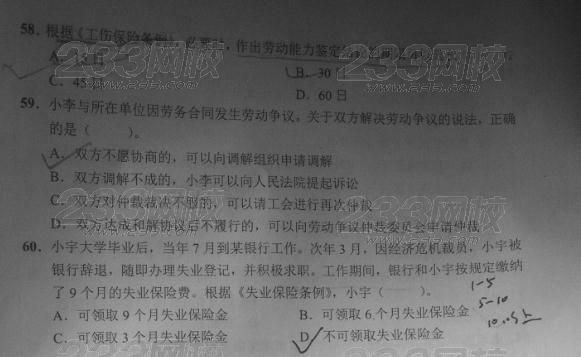 58．根据《工伤保险条例》，必要时，作出劳动能力鉴定
A．15 日
B．30
C．45
D．60 日
59．小李与所在单位因劳务合同发生劳动争议。关于双方解决劳动争议的说法，正确
的是（　　）。
A．双方不愿协商的，可以向调解组织申请调解
B．双方调解不成的，小李可以向人民法院提起诉讼
C．双方对仲裁裁决不服的，可以请工会进行再次仲裁
D．双方达成和解协议后不履行的，可以向劳动争议仲裁委员会申请仲裁
60．小宇大学毕业后，当年 7 月到某银行工作。次年 3 月，因经济危机裁员，小宇被
银行辞退，随即办理失业登记，并积极求职。工作期间，银行和小宇按规定缴纳
了 9 个月的失业保险费。根据《失业保险条例》，小宇（　　）。
A．可领取 9 个月失业保险金
B．可领取 6 个月失业保险金
C．可领取 3 个月失业保险金
D．不可领取失业保险金
1-5
5-10
233网校